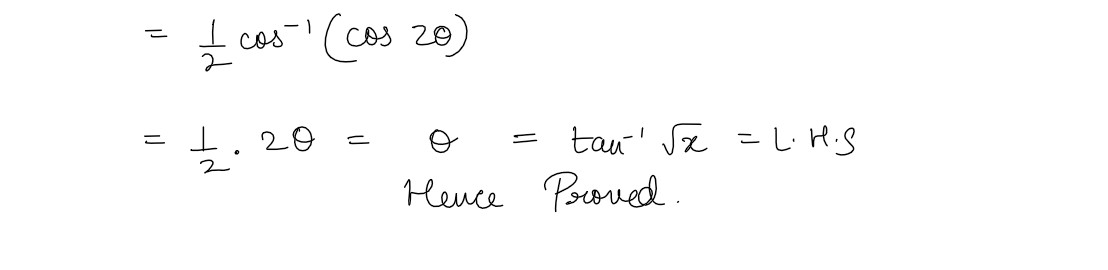 = 1/2 cos⁻¹ (cos 2θ)
= 1/2 . 2θ = θ = tan⁻¹ √x = L.H.S
Hence Proved.